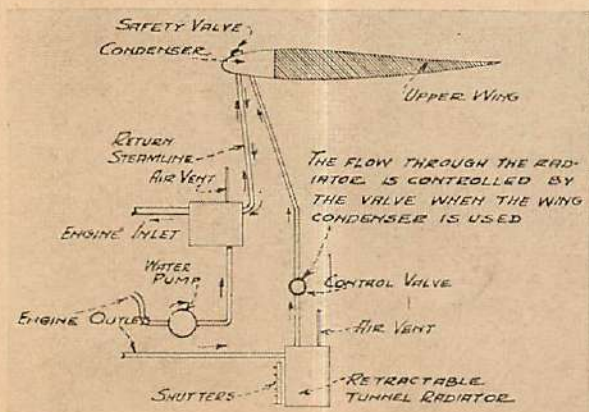 SAFETY VALVE
CONDENSER
UPPER WING
RETURN
STEAMLINE
AIR VENT
THE FLOW THROUGH THE RAD-
IATOR IS CONTROLLED BY
THE VALVE WHEN THE WING
CONDENSER IS USED
ENGINE INLET
WATER
PUMP
CONTROL VALVE
ENGINE OUTLED
AIR VENT
SHUTTERS
RETRACTABLE
TUNNEL RADIATOR